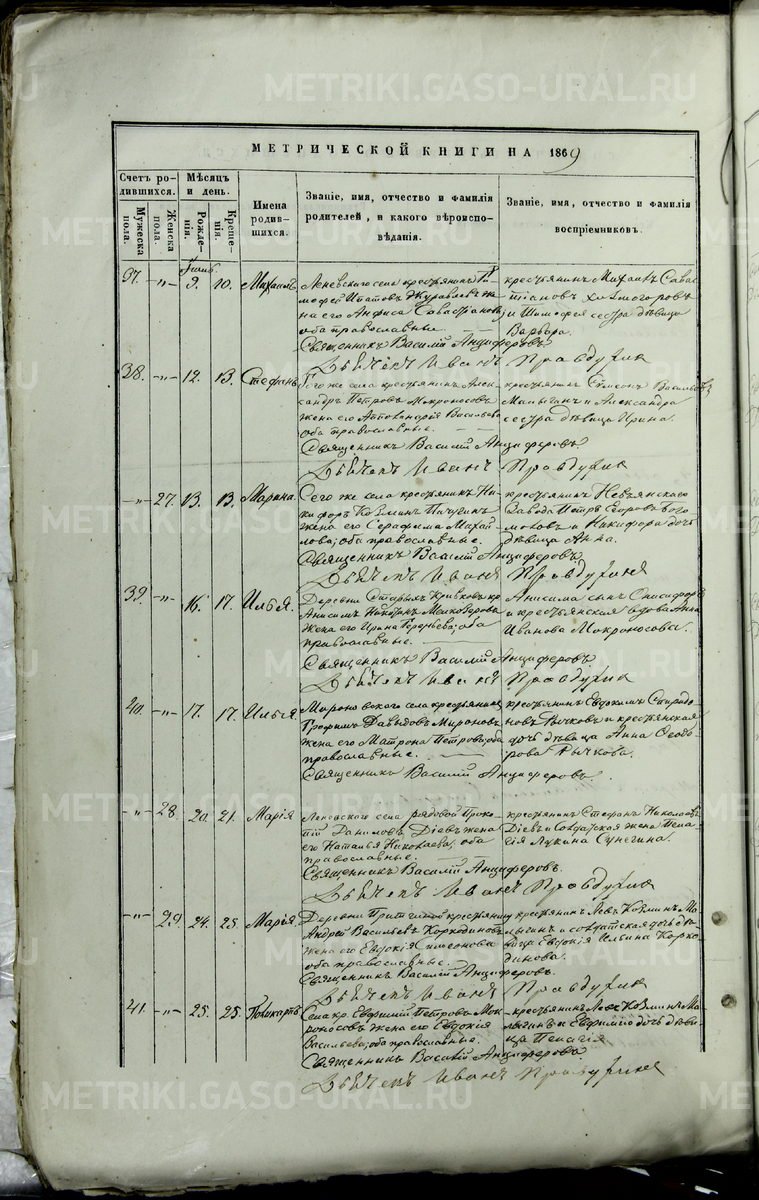 METRIKI.GASO-URAL.RU
МЕТРИЧЕСКОЙ КНИГИ НА 1869
Счетъ родившихся.
Мѣсяцъ и день.
Имена родившихся.
Званіе, имя, отчество и фамилія родителей, и какого вѣроисповѣданія.
Званіе, имя, отчество и фамилія воспріемниковъ.
Мужеска пола.
Женска пола.
Рожденія.
Крещенія.
37. -"- 9. 10. Михаилъ
Леневскаго села крестьянинъ Ти-
мофей Ипатовъ Журавлевъ же-
на его Анфиса Савастіанова
оба православные.
крестьянинъ Михаилъ Савас-
тіановъ Холмогоровъ
и Тимофея сестра дѣвица
Варвара.
Священникъ Василій Анциферовъ.
Дьячекъ Иванъ
38. -"- 12. 13. Стефанъ
Того же села крестьянинъ Алек-
сандръ Петровъ Мокроносовъ
жена его Васильева
оба православные.
крестьянинъ Симеонъ Васильевъ
Малыгинъ и Александра
сестра дѣвица Ирина.
Священникъ Василій Анциферовъ
Дьячекъ Иванъ
-"- 27. 13. 13. Марина.
Сего же села крестьянинъ Ни-
кифоръ Козминъ
жена его Серафима Михай-
лова; оба православные.
крестьянинъ Невьянскаго
Завода Петръ Егоровъ
и Никифора дочь
дѣвица Анна.
Священникъ Василій Анциферовъ
Дьячекъ Иванъ
39. -"- 16. 17. Илья.
Деревни Старыхъ Кривковъ кр.
Анисимъ
жена его Ирина оба
православные.
Анисима сынъ
и крестьянская вдова Анна
Иванова Мокроносова.
Священникъ Василій Анциферовъ
Дьячекъ Иванъ
40. -"- 17. 17. Илья.
Мироновскаго села крестьянинъ
Трофимъ Давыдовъ Мироновъ
жена его Матрона Петрова; оба
православные.
крестьянинъ Евдокимъ Спиридо-
новъ Рычковъ и крестьянская
дочь дѣвица Анна Ѳеодо-
рова Рычкова.
Священникъ Василій Анциферовъ.
-"- 28. 20. 21. Марія
Леневскаго села рядовой Проко-
пій Даниловъ Діевъ жена
его Наталья Николаева; оба
православные.
крестьянинъ Стефанъ Николаевъ
Діевъ и Солдатская жена Пела-
гія Лукина Сунегина.
Священникъ Василій Анциферовъ.
Дьячекъ Иванъ
-"- 29. 24. 25. Марія.
Деревни крестьянинъ
Андрей Васильевъ Коркодиновъ
жена его Евдокія Симеонова
оба православные.
крестьянинъ Левъ Козминъ Ма-
лыгинъ и солдатская дочь дѣ-
вица Евдокія Корко-
динова.
Священникъ Василій Анциферовъ.
Дьячекъ Иванъ
41. -"- 25. 25. Поликарпъ
Села кр. Евфимій Петровъ Мок-
роносовъ жена его Евдокія
Васильева; оба православные.
крестьянинъ Левъ Козминъ Ма-
лыгинъ и Евфимія дочь дѣви-
ца Пелагія.
Священникъ Василій Анциферовъ
Дьячекъ Иванъ
METRIKI.GASO-URAL.RU